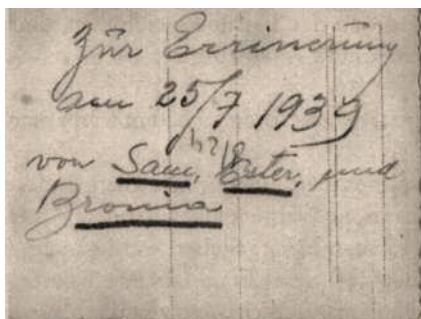 Zür Errinerung
am 25/7 1939
von Sam, Ester, und
Bronia